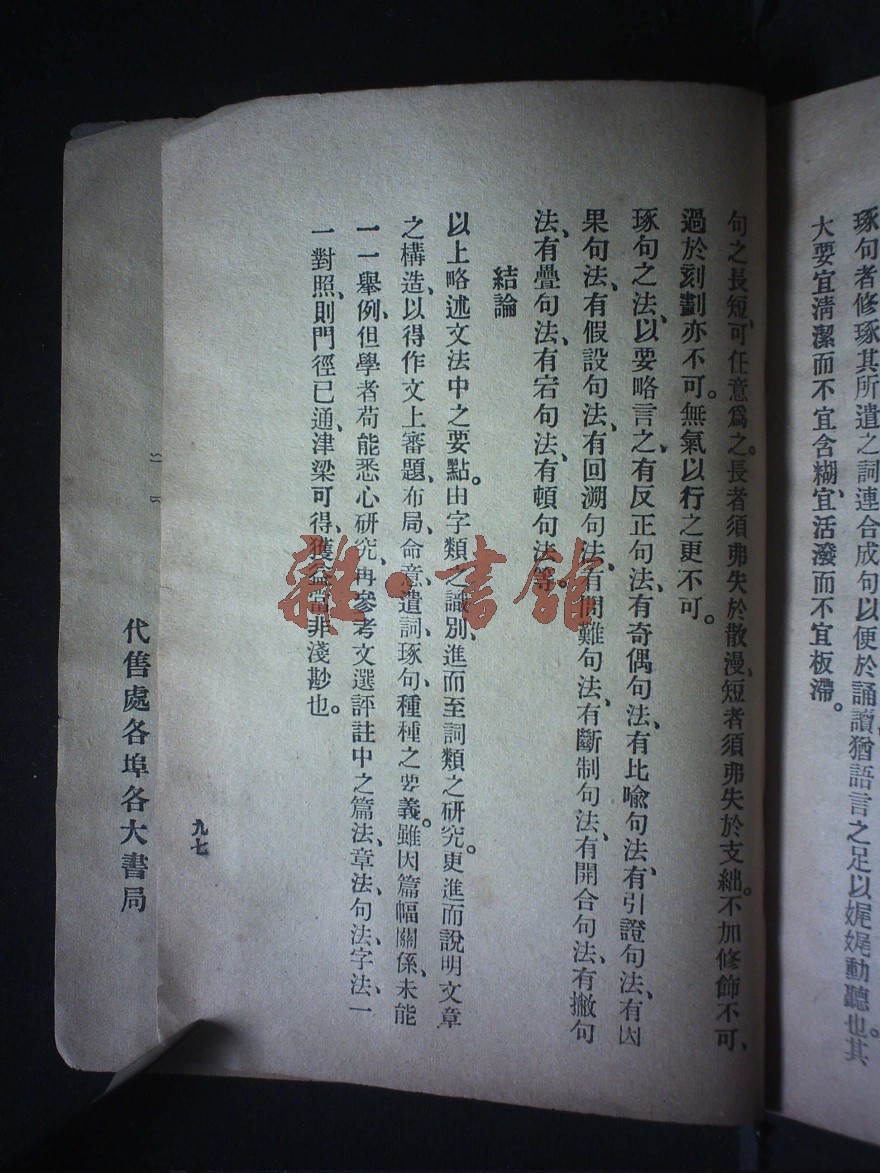 琢句者修琢其所遣之詞連合成句以便於誦讀猶語言之足以娓娓動聽也。其
大要宜清潔而不宜含糊、宜活潑而不宜板滯。
句之長短、可任意爲之。長者須弗失於散漫、短者須弗失於支絀。不加修飾不可、
過於刻劃亦不可。無氣以行之更不可。
琢句之法、以要略言之、有反正句法、有奇偶句法、有比喻句法、有引證句法、有因
果句法、有假設句法、有回溯句法、有問難句法、有斷制句法、有開合句法、有撇句
法、有疊句法、有宕句法、有頓句法等。
結論
以上略述文法中之要點。由字類之識別、進而至詞類之研究。更進而說明文章
之構造、以得作文上審題、布局、命意、遣詞、琢句、種種之要義。雖因篇幅關係、未能
一一舉例、但學者苟能悉心研究、再參考文選評註中之篇法、章法、句法、字法、一
一對照、則門徑已通、津梁可得、獲益當非淺尠也。
九七
代售處各埠各大書局
雜·書館